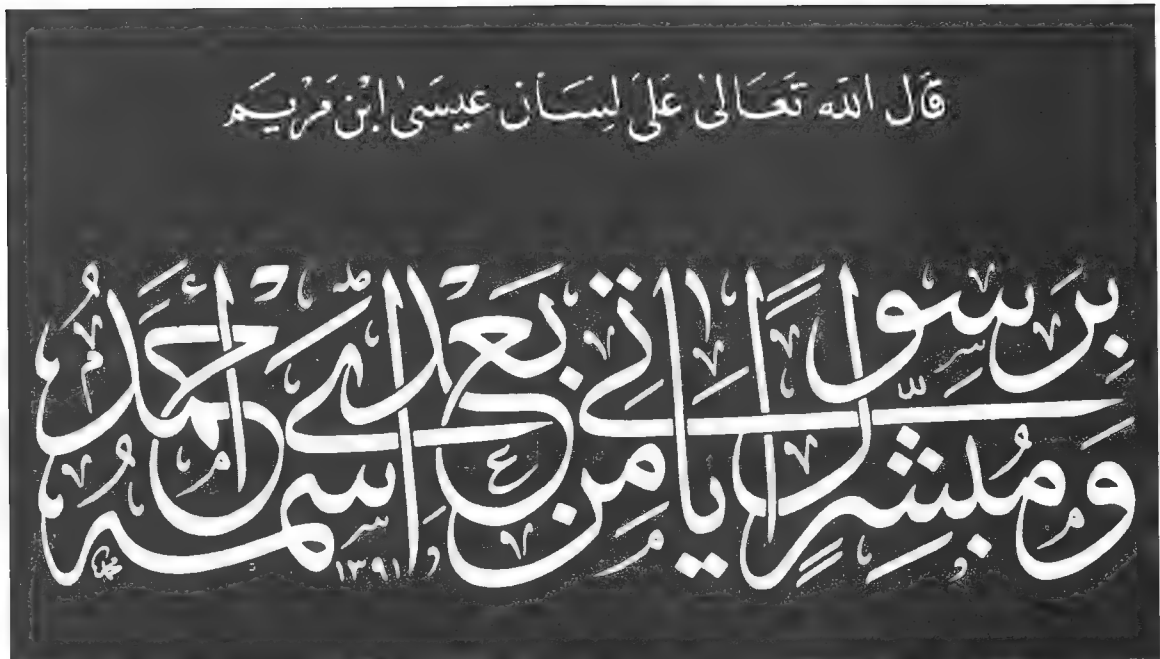 قَال اللّه تَعَالىٰ عَلىَ لِسَان عيسَىٰ ابْن مَرْيَم
وَمُبَشِّرًا بِرَسُولٍ يَأتِي مِنْ بَعْدِي اسْمُهُ أَحْمَدُ
١٣٩١